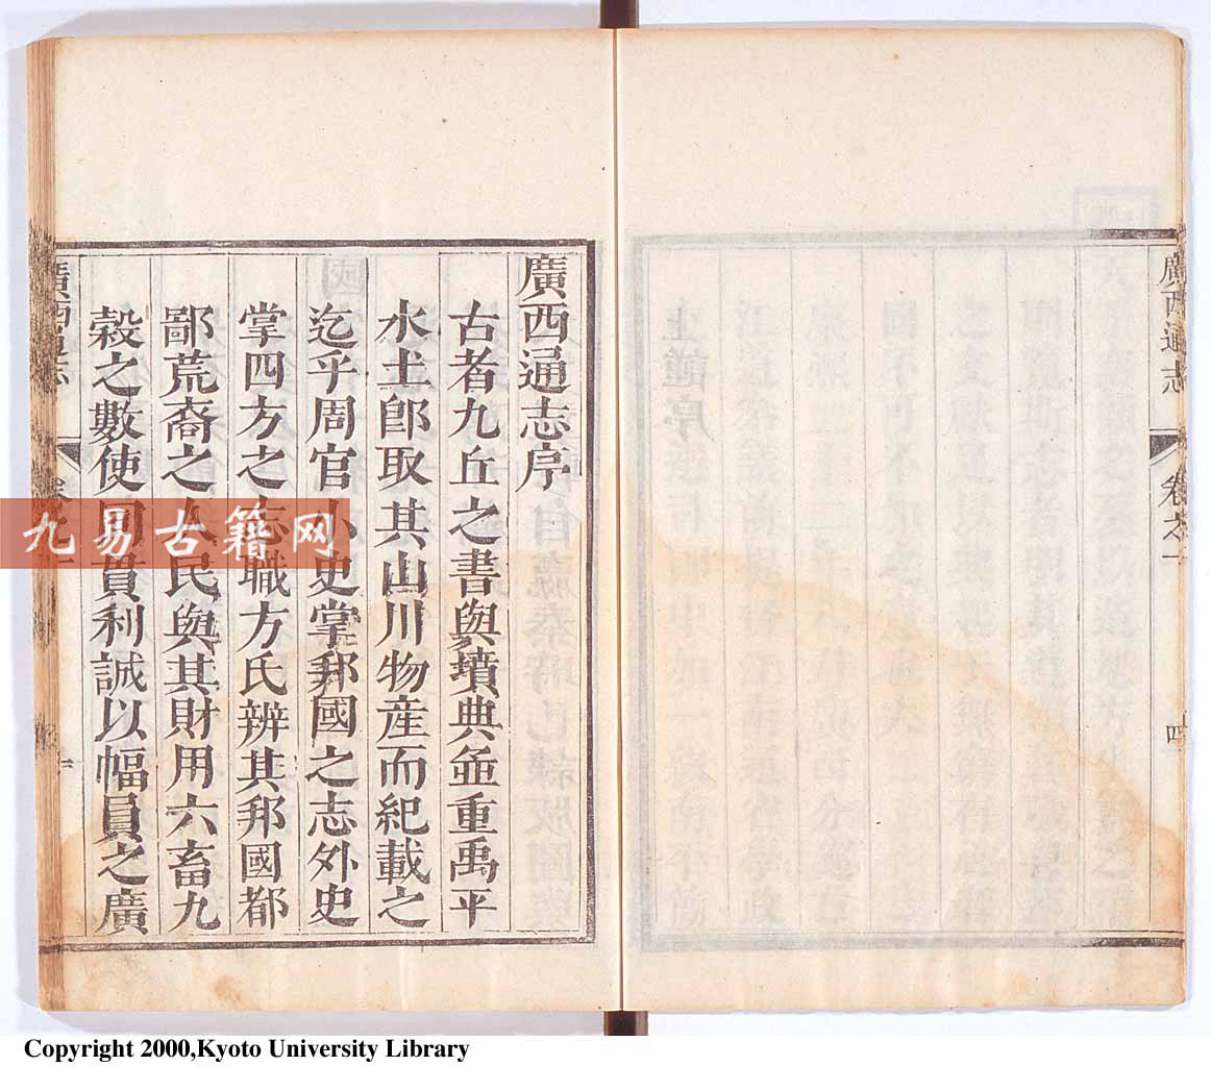 廣西通志
卷之一
四
廣西通志序
古者九丘之書與墳典並重禹平
水土卽取其山川物産而紀載之
迄乎周官小史掌邦國之志外史
掌四方之志職方氏辨其邦國都
鄙荒裔之人民與其財用六畜九
穀之數使同貫利誠以幅員之廣
廣西通志
九易古籍网
Copyright 2000,Kyoto University Library